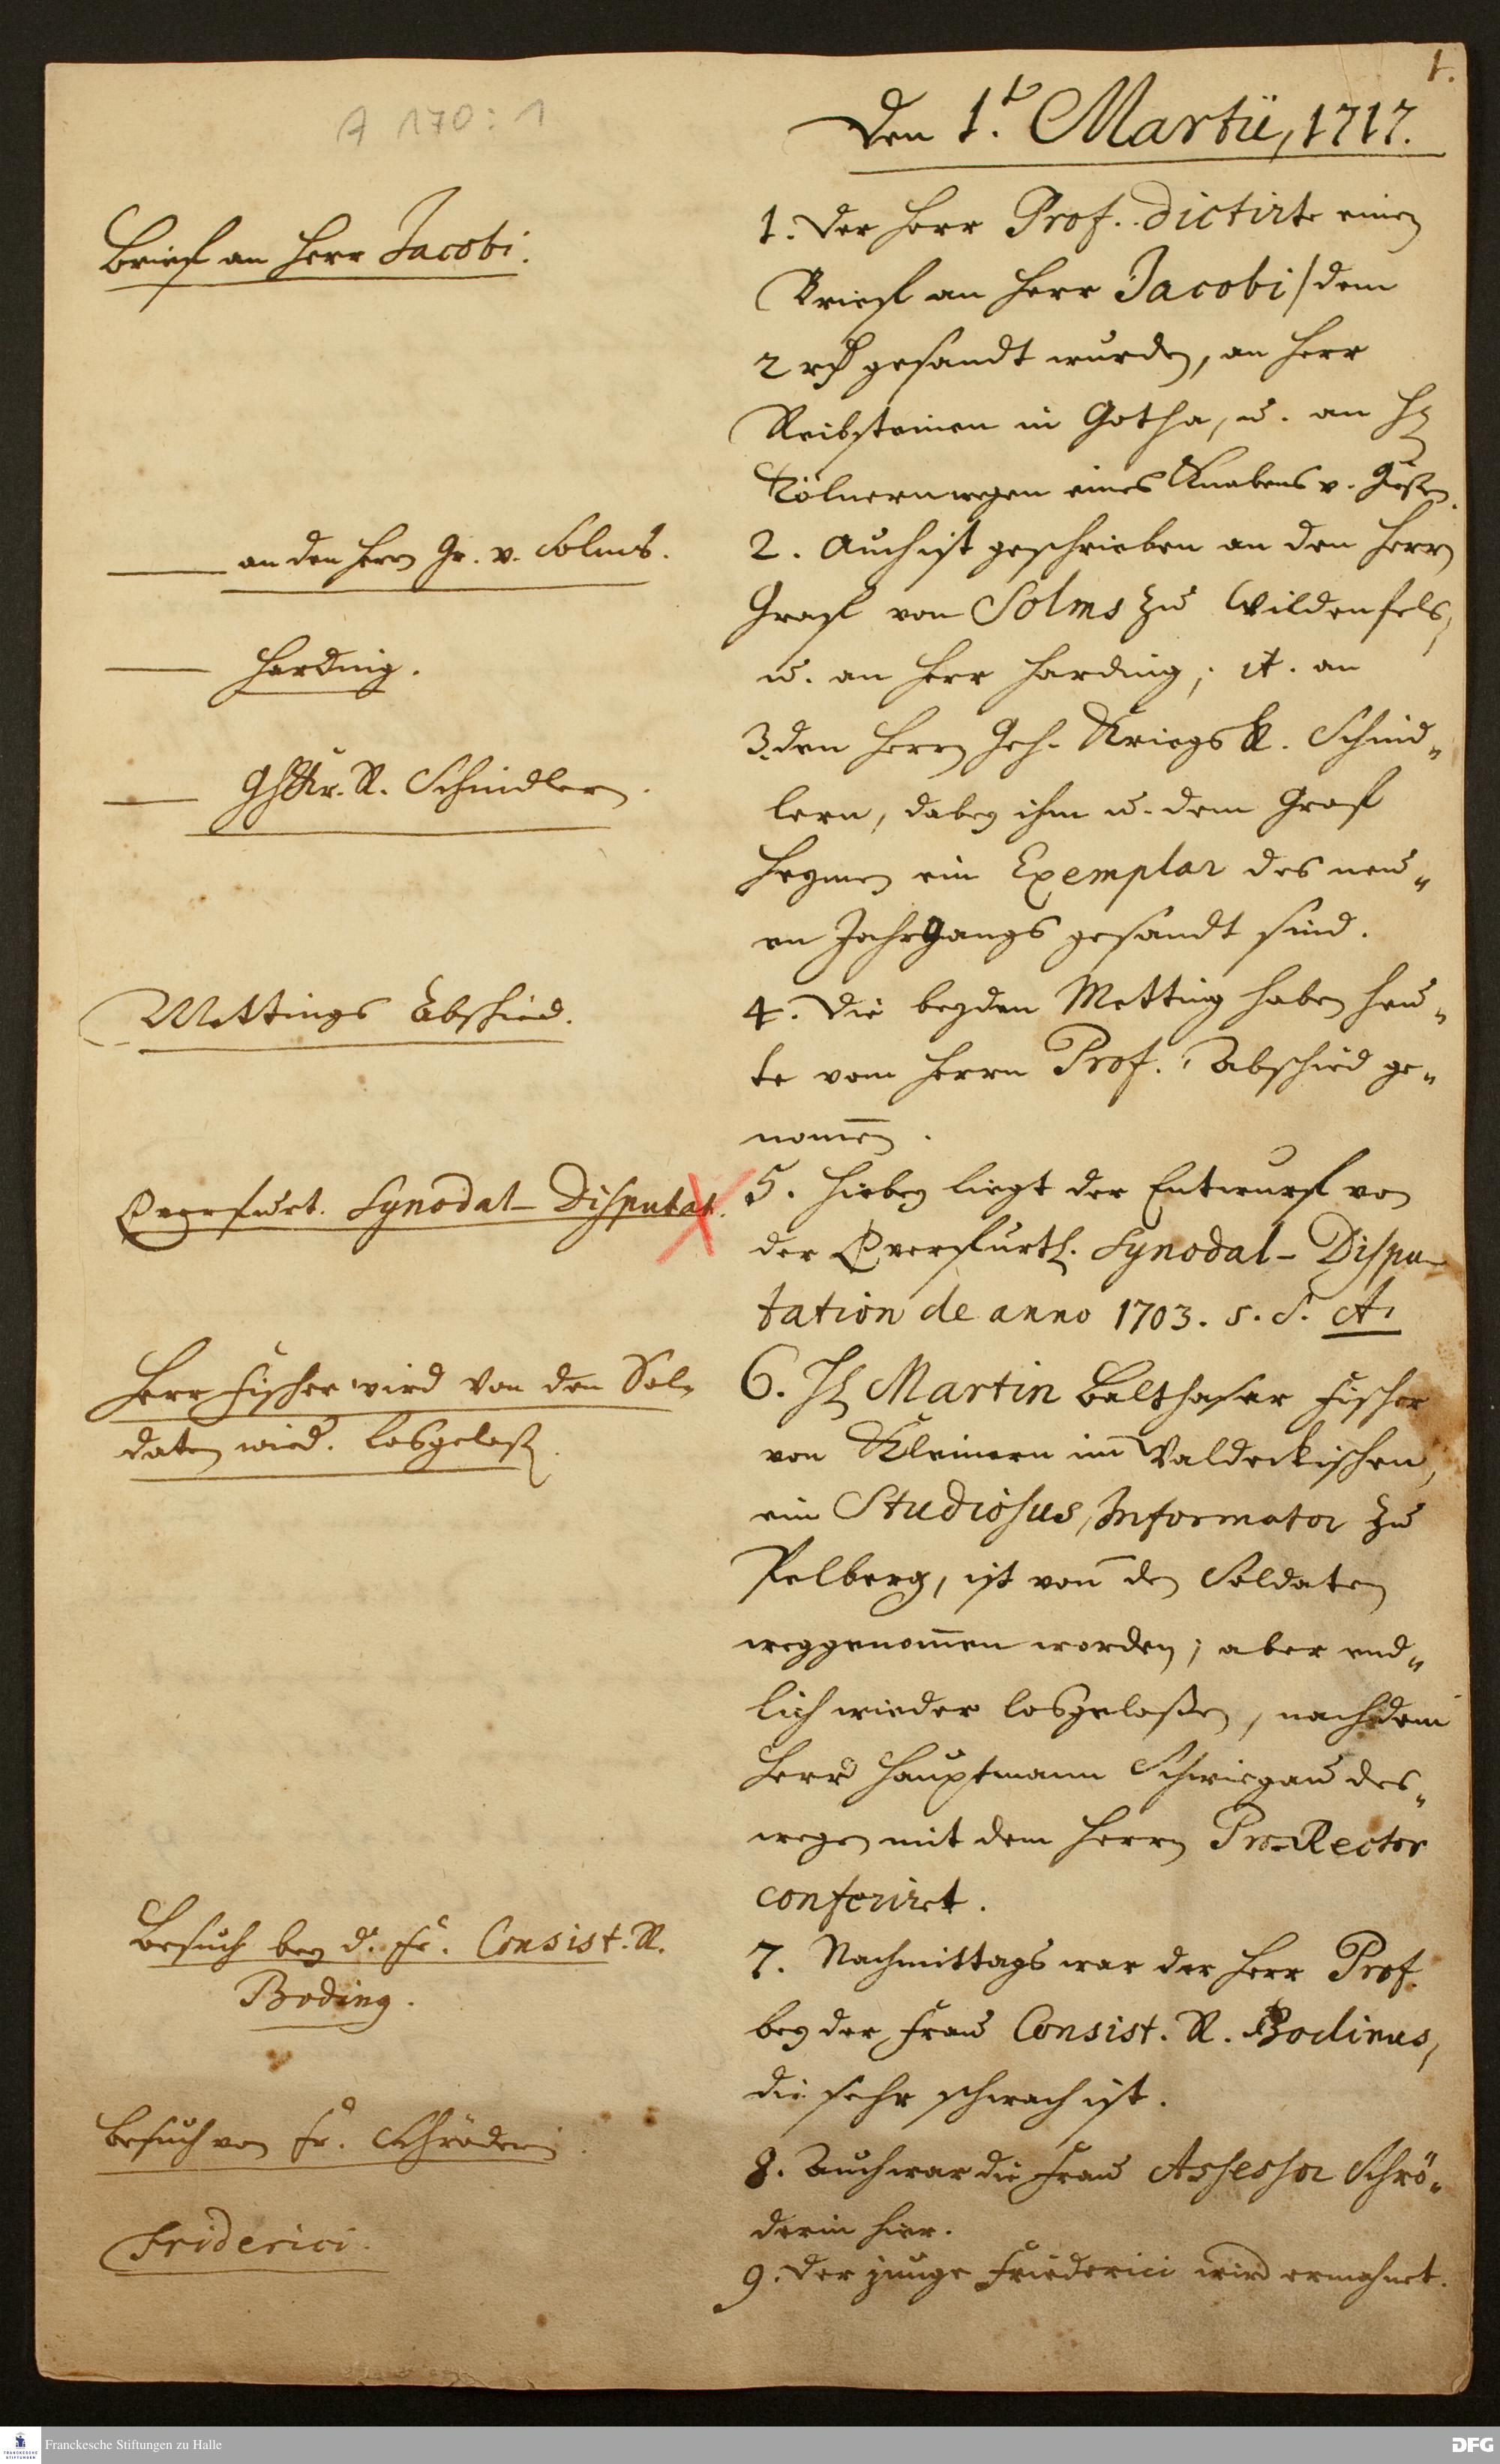 1.
A 170:1
Den 1.t Martii, 1717.
Brief an Herr Jacobi.
1. Der Herr Prof. dictirte einen
Brief an Herr Jacobi / dem
2 rth gesandt wurden, an Herr
Reibsteinen in Gotha, u. an H.
wegen eines Knabens v.
an den Herrn Gr. v. Solms.
2. Auch ist geschrieben an den Herrn
Graf von Solms zu Wildenfels,
Harding.
u. an Herr Harding; it. an
Gh Kr. R. Schindlern.
3. den Herrn Geh. Kriegs R. Schind„
lern, dabey ihm u. dem Graf
ein Exemplar des neu„
en Jahrgangs gesandt sind.
Mettings Abschied.
4. Die beyden Metting haben heu„
te vom Herrn Prof. Abschied ge„
nom̄en.
Qverfurt. Synodal-Disputat.
5. Hiebey liegt der Entwurf von
der Qverfurth. Synodal-Dispu-
tation de anno 1703. s. S. A.
Herr Fischer wird von den Sol-
daten wied. losgelaß.
6. H. Martin Balthasar Fischer
von Kleinern im Waldeckischen,
ein Studiosus, Informator zu
Pelberg, ist von den Soldaten
weggenom̄en worden; aber end„
lich wieder losgelaßen, nachdem
Herr Hauptmann Schwiegau des„
wegen mit dem Herrn Pro-Rector
conferiret.
Besuch bey d. Fr. Consist. R.
Boding.
7. Nachmittags war der Herr Prof.
bey der Frau Consist. R. Bodinus,
die sehr schwach ist.
Besuch von Fr. Schröderin.
8. Auch war die Frau Assessor Schrö„
derin hier.
Friderici.
9. Der junge Friederici wird ermahnet.
Franckesche Stiftungen zu Halle
FRANCKESCHE STIFTUNGEN
DFG